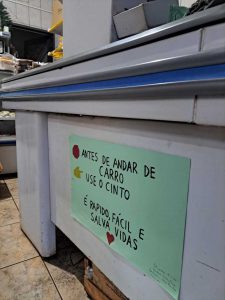 ANTES DE ANDAR DE
CARRO
USE O CINTO
É RAPIDO, FÁCIL E
SALVA VIDAS